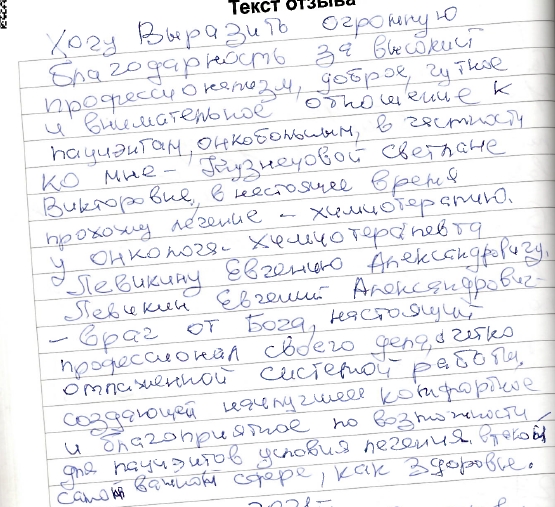 Текст отзыва
Хочу Выразить огромную
благодарность за высокий
профессионализм, доброе, чуткое
и внимательное отношение к
пациэнтам, онкобольным, в частности
ко мне - Кузнецовой Светлане
Викторовне, в настоящее время
прохожу лечение - химиотерапию.
у онколога- химиотерапевта
Левикину Евгению Александровичу.
Левикин Евгений Александрович-
- врач от Бога, настоящий
профессионал своего дела, с четко
отлаженной системой работы,
создающей наилучшее комфортное
и благоприятное по возможности
для пациэнтов условия лечения в такой
самой важной сфере, как Здоровье.